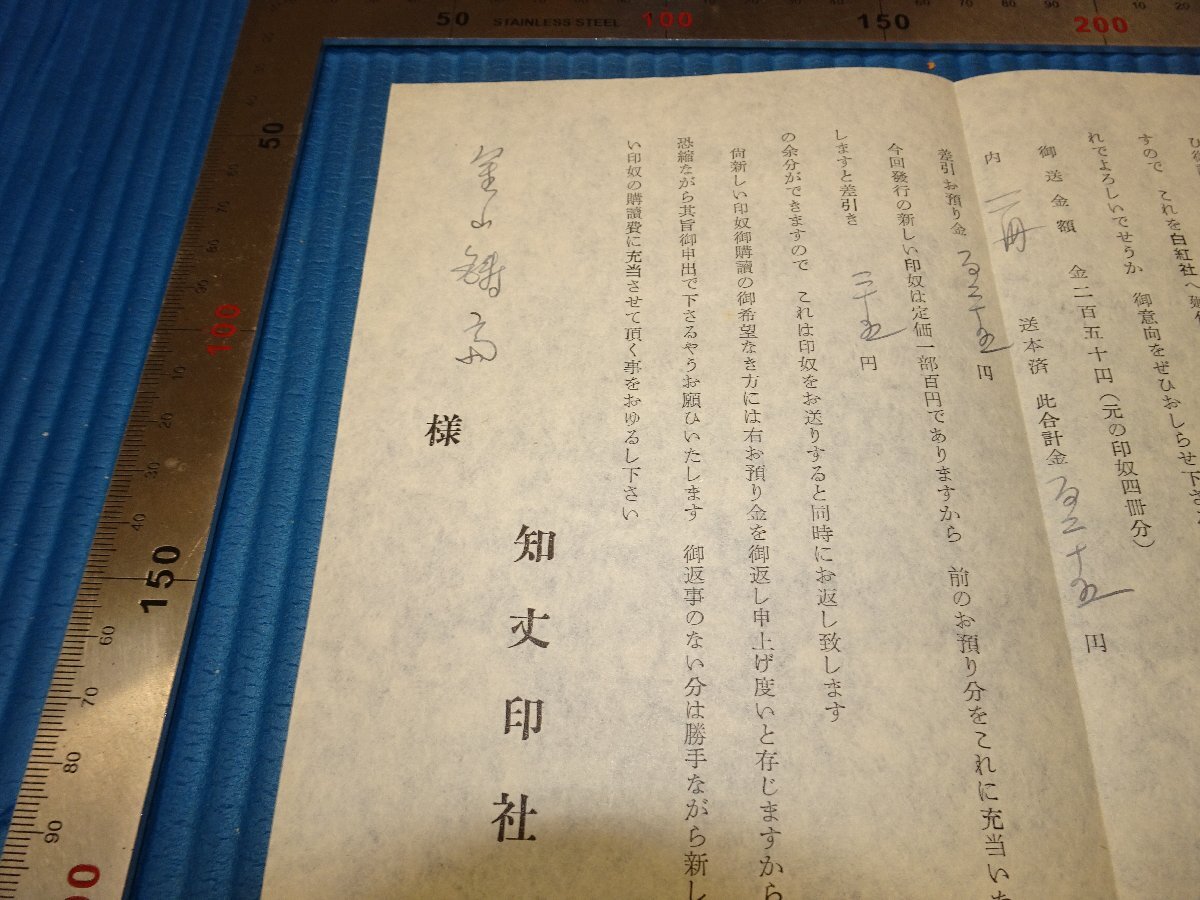 すので これを白紅社へ
れでよろしいでせうか 御意向をぜひおしらせ下さ
御送金額 金二百五十円(元の印奴四冊分)
内 二冊 送本済 此合計金 百二十五 円
差引お預り金 百二十五 円
今回發行の新しい印奴は定価一部百円でありますから 前のお預り分をこれに充当いた
しますと差引き 二十五 円
の余分ができますので これは印奴をお送りすると同時にお返し致します
尙新しい印奴御購讀の御希望なき方には右お預り金を御返し申上げ度いと存じますから
恐縮ながら其旨御申出で下さるやうお願ひいたします 御返事のない分は勝手ながら新し
い印奴の購讀費に充当させて頂く事をおゆるし下さい
知丈印社
様
50 STAINLESS STEEL 100 150 200
50
100
150